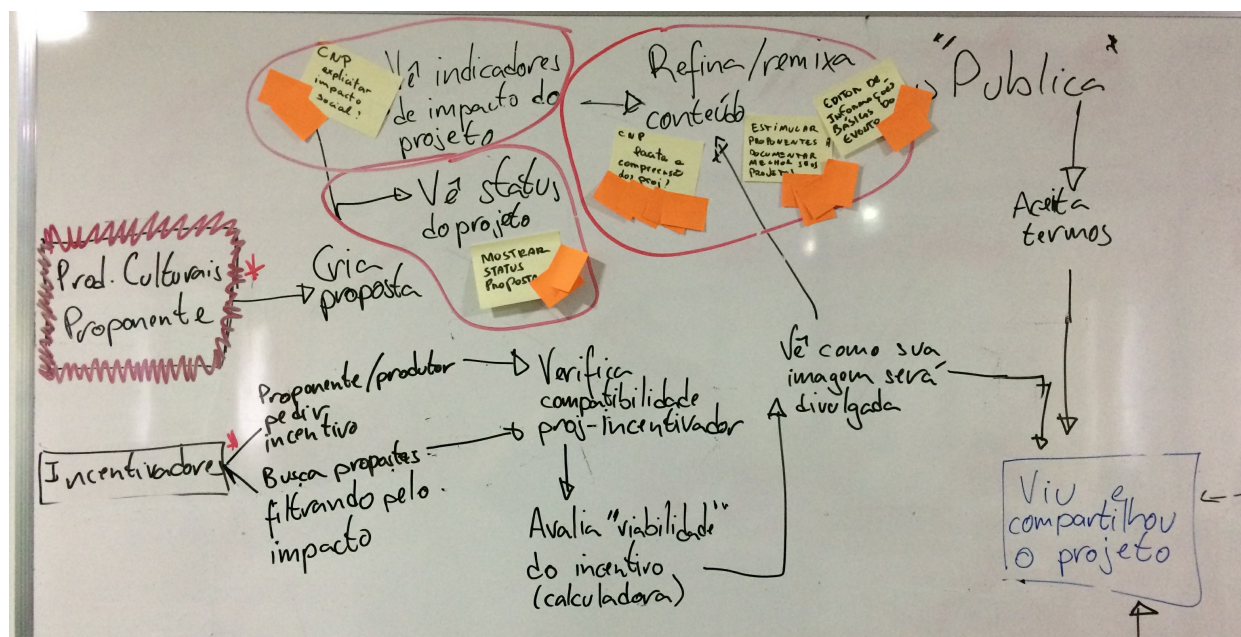 CNP
explicitar
impacto
social?
Vê indicadores
de impacto do
projeto
Refina/remixa
conteúdo
CNP
facita a
compreensão
dos proj?
ESTIMULAR
PROPONENTES A
DOCUMENTAR
MELHOR SEUS
PROJETOS
EDITOR DE
INFORMAÇÕES
BÁSICAS DO
EVENTO
"Publica"
Vê status
do projeto
MOSTRAR
STATUS
PROPOSTA
Aceita
termos
Prod. Culturais *
Proponente
Cria
proposta
Incentivadores *
Proponente/produtor
pedir
incentivo
Busca propostas
filtrando pelo
impacto
Verifica
compatibilidade
proj-incentivador
Avalia "viabilidade"
do incentivo
(calculadora)
Vê como sua
imagem será
divulgada
Viu e
compartilhou
o projeto